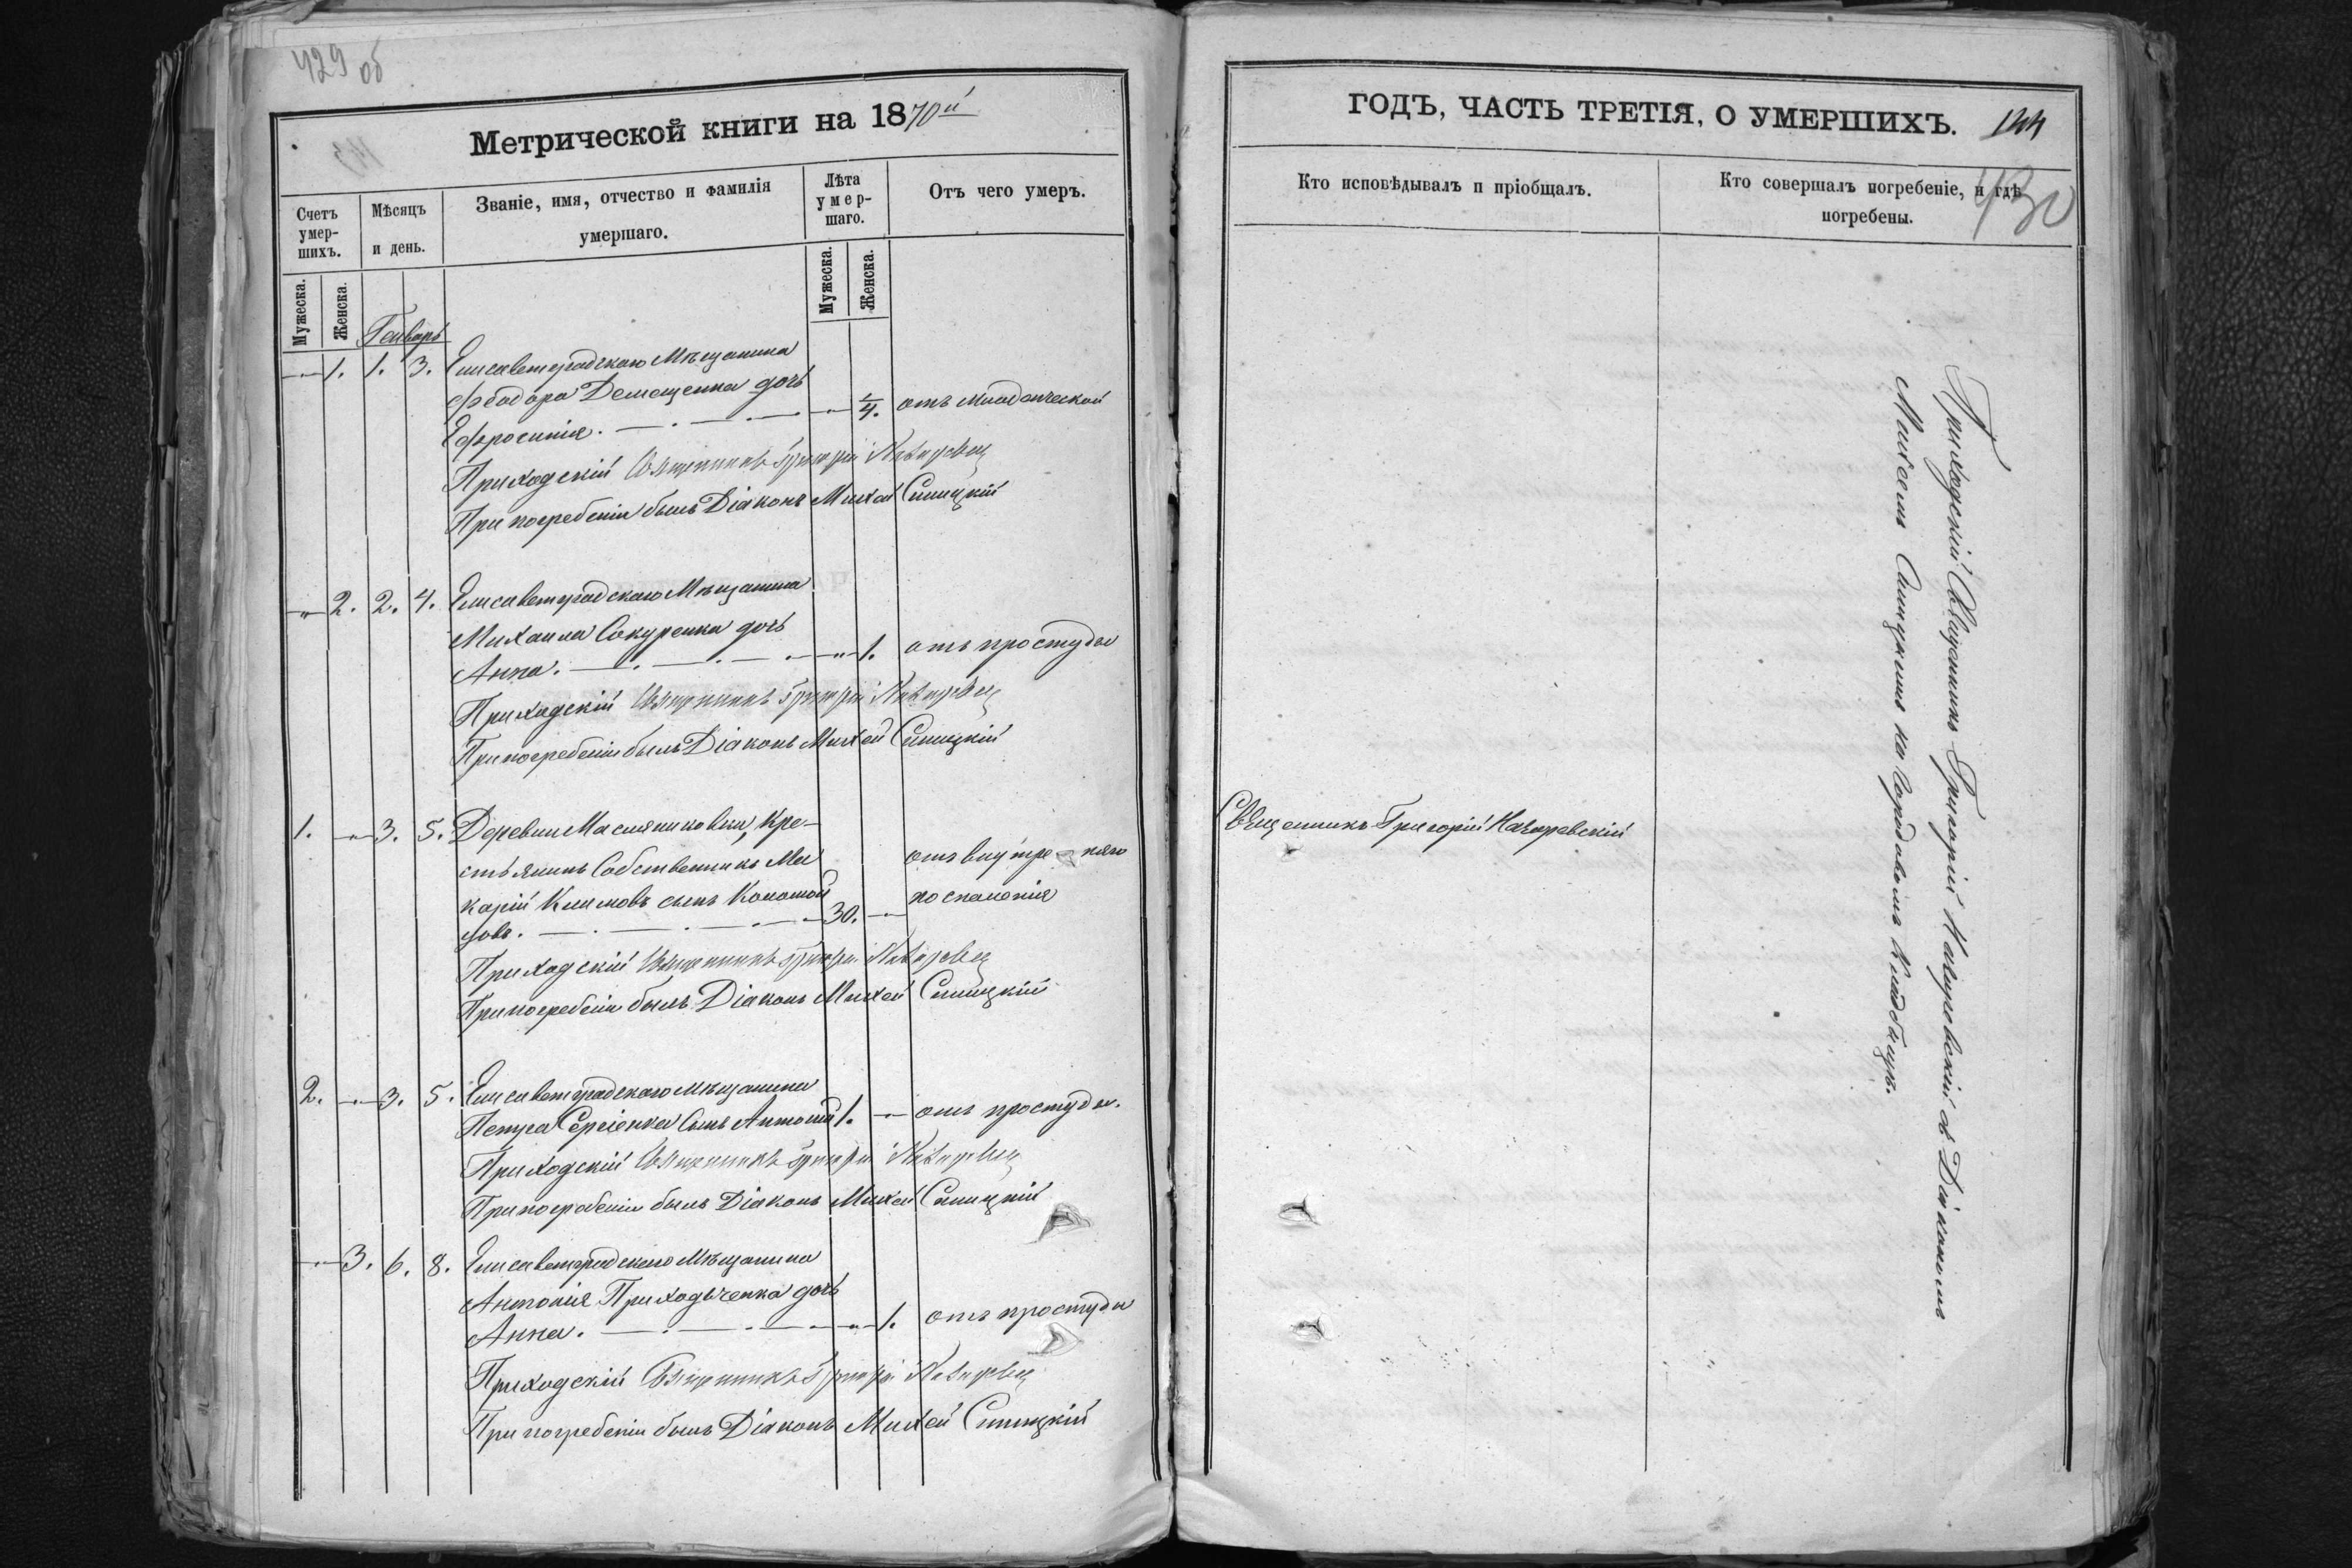 429 об
Метрической книги на 1870й
Счетъ умер-шихъ.
Мѣсяцъ и день.
Званіе, имя, отчество и фамилія умершаго.
Лѣта умер-шаго.
Отъ чего умеръ.
Мужеска.
Женска.
Мужеска.
Женска.
Генварь
1. 1. 3. Елисаветградскаго Мѣщанина
Ѳеодора Демещенка дочь
Ефросинія. 1/4. отъ младенческой
Приходскій Священникъ Григорій
При погребеніи былъ Діаконъ Михей Синицкій
2. 2. 4. Елисаветградскаго Мѣщанина
Михаила Сокуренка дочь
Анна. 1. отъ простуды
Приходскій Священникъ Григорій
При погребеніи былъ Діаконъ Михей Синицкій
1. 3. 5. Деревни Масляниковки, Кре-
стьянинъ Собственникъ Ма
карій Климовъ сынъ
30. отъ внутре- няго
воспаленія
Приходскій Священникъ Григорій
При погребеніи былъ Діаконъ Михей Синицкій
2. 3. 5. Елисаветградскаго мѣщанина
Петра Сергіенка сынъ Антоній 1. отъ простуды.
Приходскій Священникъ Григорій
При погребеніи былъ Діаконъ Михей Синицкій
3. 6. 8. Елисаветградскаго Мѣщанина
Антонія Приходьченка дочь
Анна. 1. отъ простуды
Приходскій Священникъ Григорій
При погребеніи былъ Діаконъ Михей Синицкій
ГОДЪ, ЧАСТЬ ТРЕТІЯ, О УМЕРШИХЪ. 144
Кто исповѣдывалъ и пріобщалъ.
Кто совершалъ погребеніе, и гдѣ погребены.
430
Священникъ Григорій Назаревскій
Приходскій Священникъ Григорій Назаревскій съ Діакономъ
Михеемъ Синицкимъ на Городовомъ Кладбищѣ.